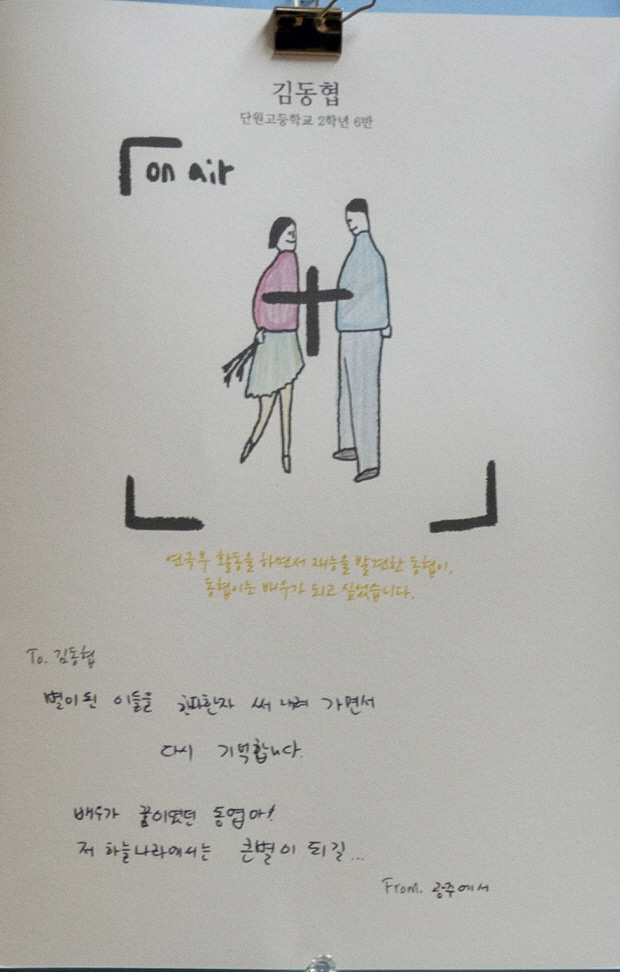 김동협
단원고등학교 2학년 6반
on air
연극부 활동을 하면서 재능을 발견한 동협이.
동협이는 배우가 되고 싶었습니다.
To. 김동협
별이 된 이들을 한자한자 써 내려 가면서
다시 기억합니다.
배우가 꿈이였던 동엽아!
저 하늘나라에서는 큰별이 되길...
From. 광주에서